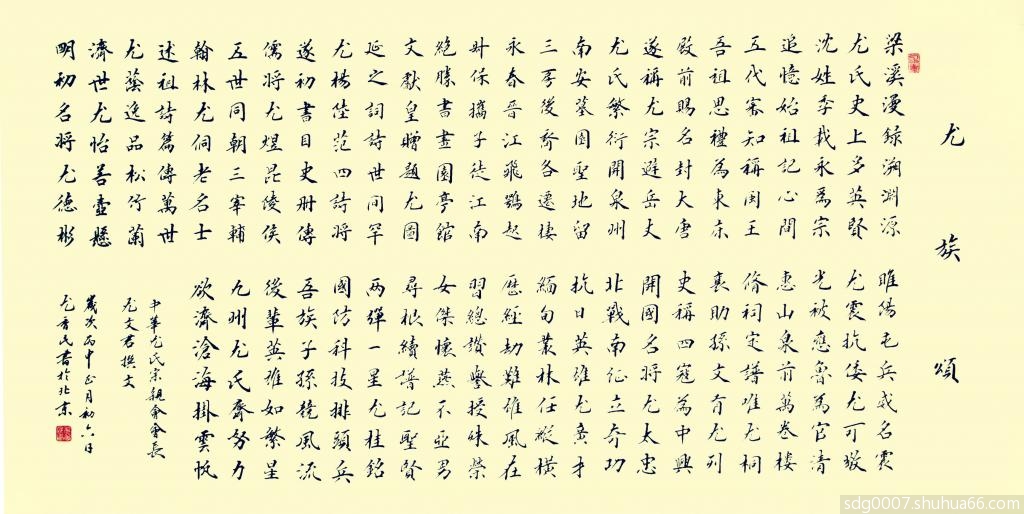 尤族頌
梁溪漫錄溯淵源
尤氏史上多英賢
沈姓季戕永為宗
追憶始祖記心間
五代審知稱閩王
吾祖思禮為東床
殿前賜名封大唐
遂稱尤宗避岳丈
尤氏繁衍開泉州
南安墓園聖地留
三後裔各遷棲
永春晉江飛鸚起
叔保攜子徙江南
絕勝書畫園亭館
文獻皇贈題尤圖
延之詞詩世間罕
尤楊陸范四詩將
遂初書目史冊傳
儒將尤煜昆陵侯
五世同朝三宰輔
翰林尤侗老名士
述祖詩篇傳萬世
尤蔭逸品松竹蘭
濟世尤怡善壺懸
明初名將尤德彬
睢陽屯兵威名震
尤震抗倭尤可敬
光被應魯為官清
惠山泉前萬卷樓
脩祠定譜唯尤桐
襄助孫文有尤列
史稱四寇為中興
開國名將尤太忠
北戰南征立奇功
抗日英雄尤廣才
緬甸叢林任縱橫
歷經劫難雄風在
習總讚譽授殊榮
女傑懷燕不亞男
尋根續譜記聖賢
兩彈一星尤桂銘
國防科技排頭兵
吾族子孫競風流
後輩英雄如繁星
九州尤氏齊努力
欲濟滄海掛雲帆
中華尤氏宗親會會長
尤文君撰文
歲次丙申正月初六日
尤香民書於北京
sdg0007.shuhua66.com